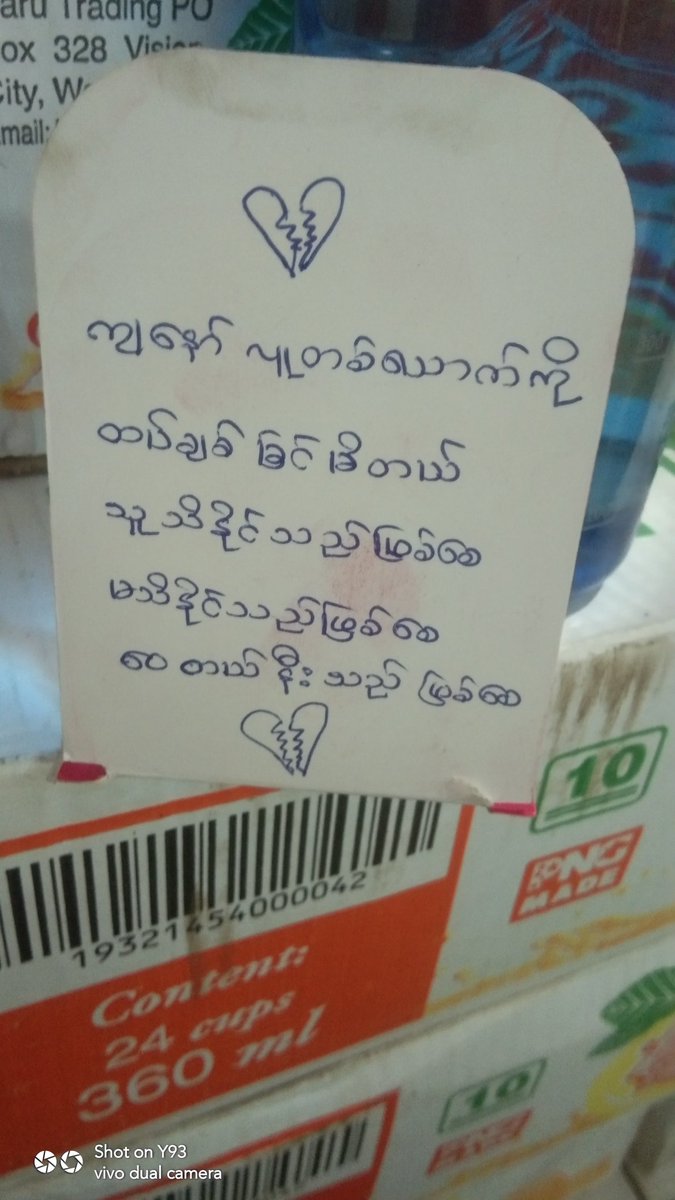 aru Trading PO
ox 328 Vision
City, W
mail:
ကျနော် လူတစ်ယောက်ကို
ထပ်ချစ် ခြင် မိတယ်
သူ သိနိုင်သည်ဖြစ်စေ
မသိနိုင်သည်ဖြစ်စေ
ဝေ တယ် ငိုး သည် ဖြစ်စေ
10
SONG
MADE
19321454000042
Content:
24 cups
360 ml
10
Shot on Y93
vivo dual camera